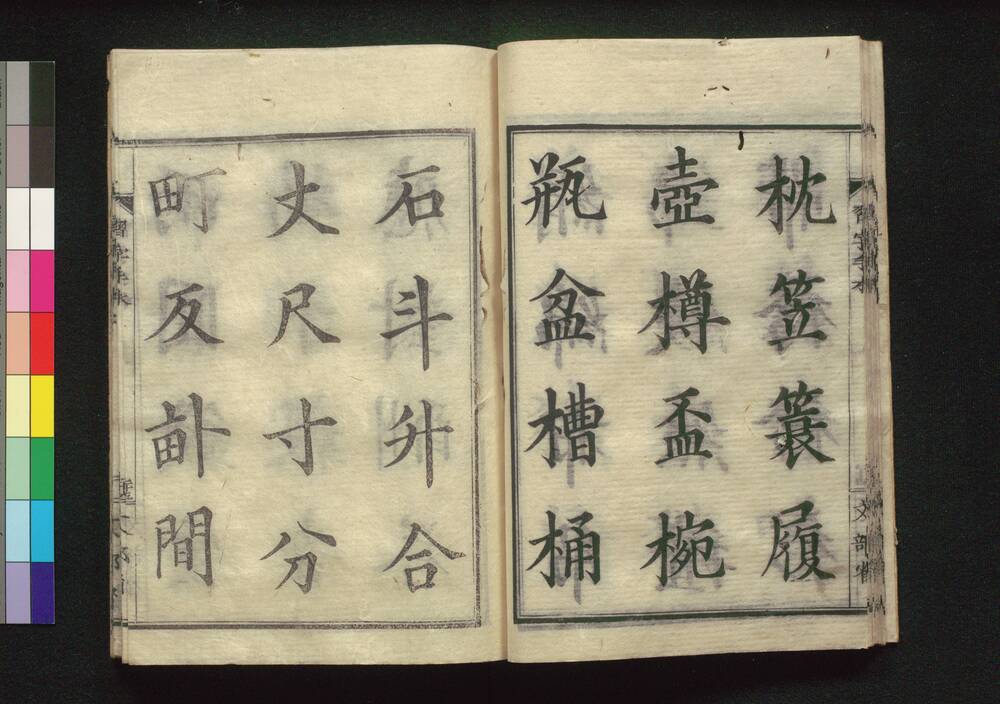 枕笠簑履
壺樽盃椀
瓶盆槽桶
石斗升合
丈尺寸分
町反畝間
習字手本
文部省